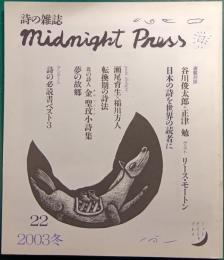 詩の雑誌
midnight press
連載対談
谷川俊太郎+正津 勉 ゲスト リース・モートン
日本の詩を世界の読者に
瀬尾育生+稲川方人
転換期の詩法
北の詩人 金 聖玟小詩集
夢の故郷
アンケート
詩の必読書ベスト3
22
2003冬